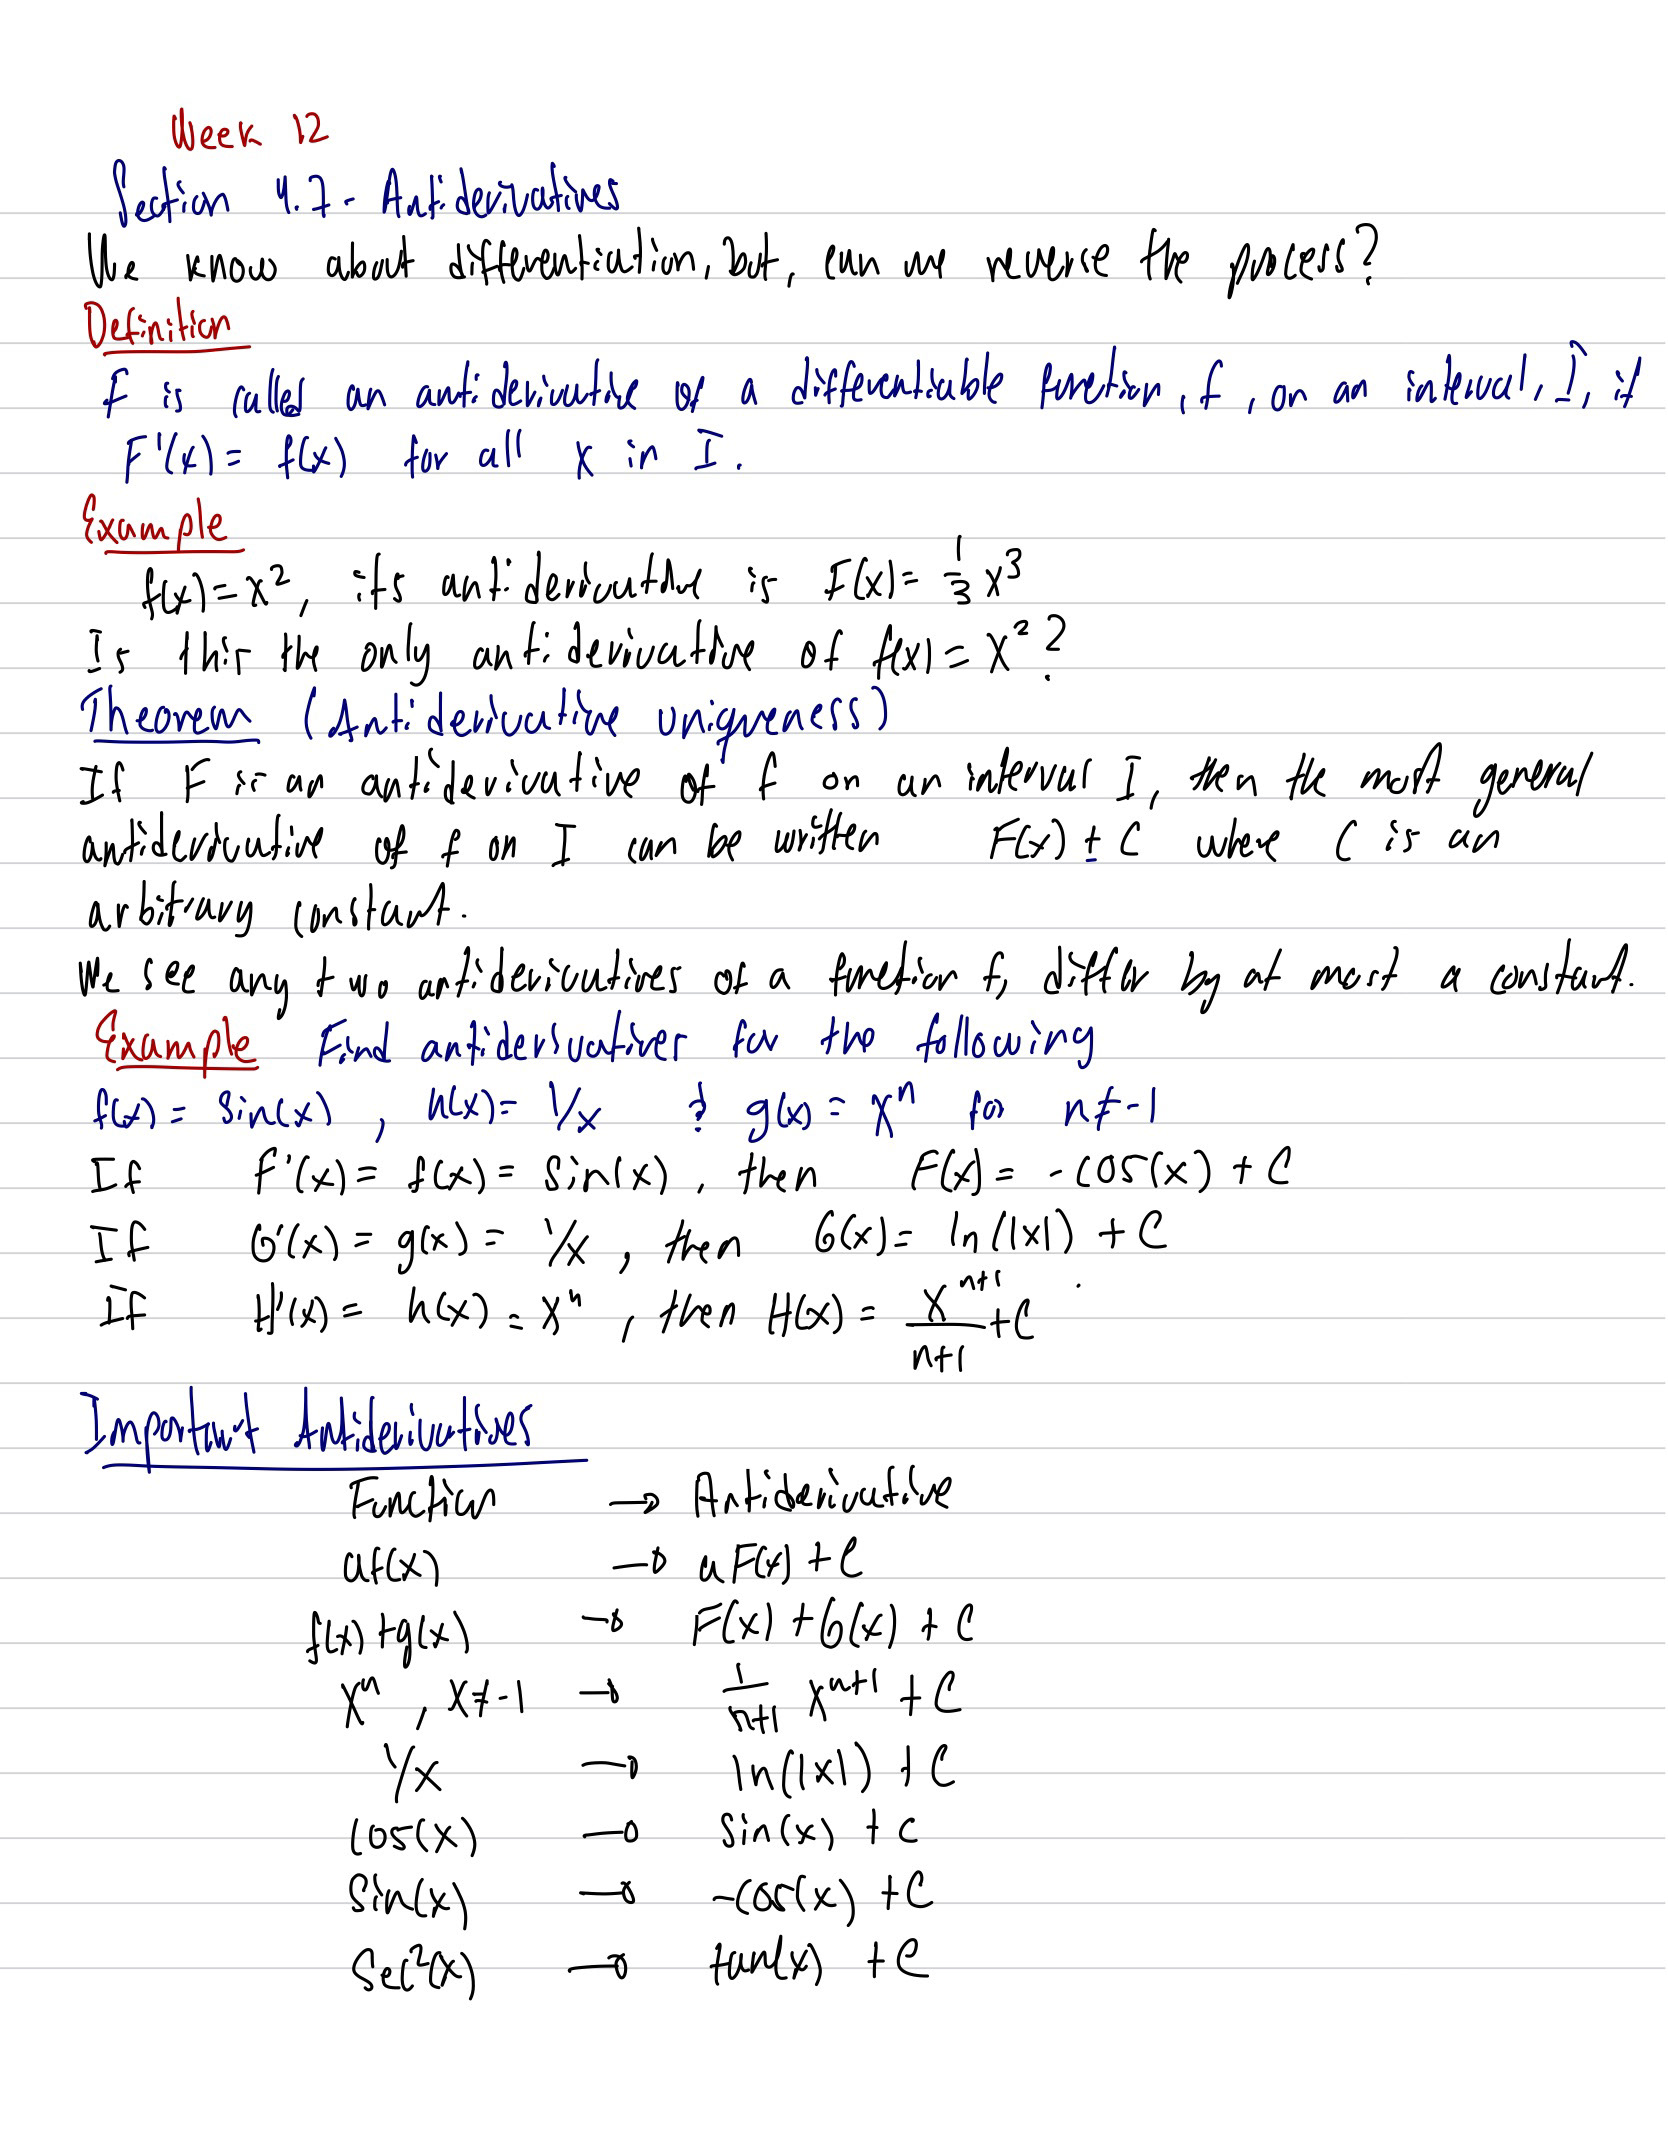 Week 12
Section 4.7 - Antiderivatives
We know about differentiation, but, can we reverse the process?
Definition
F is called an antiderivative of a differentiable function, f, on an interval, I, if
F'(x) = f(x) for all x in I.
Example
f(x) = x², its antiderivative is F(x) = 1/3 x³
Is this the only antiderivative of f(x) = x²?
Theorem (Antiderivative uniqueness)
If F is an antiderivative of f on an interval I, then the most general
antiderivative of f on I can be written F(x) ± C where C is an
arbitrary constant.
We see any two antiderivatives of a function f, differ by at most a constant.
Example Find antiderivatives for the following
f(x) = sin(x), h(x) = 1/x & g(x) = xⁿ for n ≠ -1
If F'(x) = f(x) = sin(x), then F(x) = -cos(x) + C
If G'(x) = g(x) = 1/x, then G(x) = ln(|x|) + C
If H'(x) = h(x) = xⁿ, then H(x) = xⁿ⁺¹/n+1 + C
Important Antiderivatives
Function → Antiderivative
af(x) → aF(x) + C
f(x) + g(x) → F(x) + G(x) + C
xⁿ, x ≠ -1 → 1/n+1 xⁿ⁺¹ + C
1/x → ln(|x|) + C
cos(x) → sin(x) + C
sin(x) → -cos(x) + C
sec²(x) → tan(x) + C